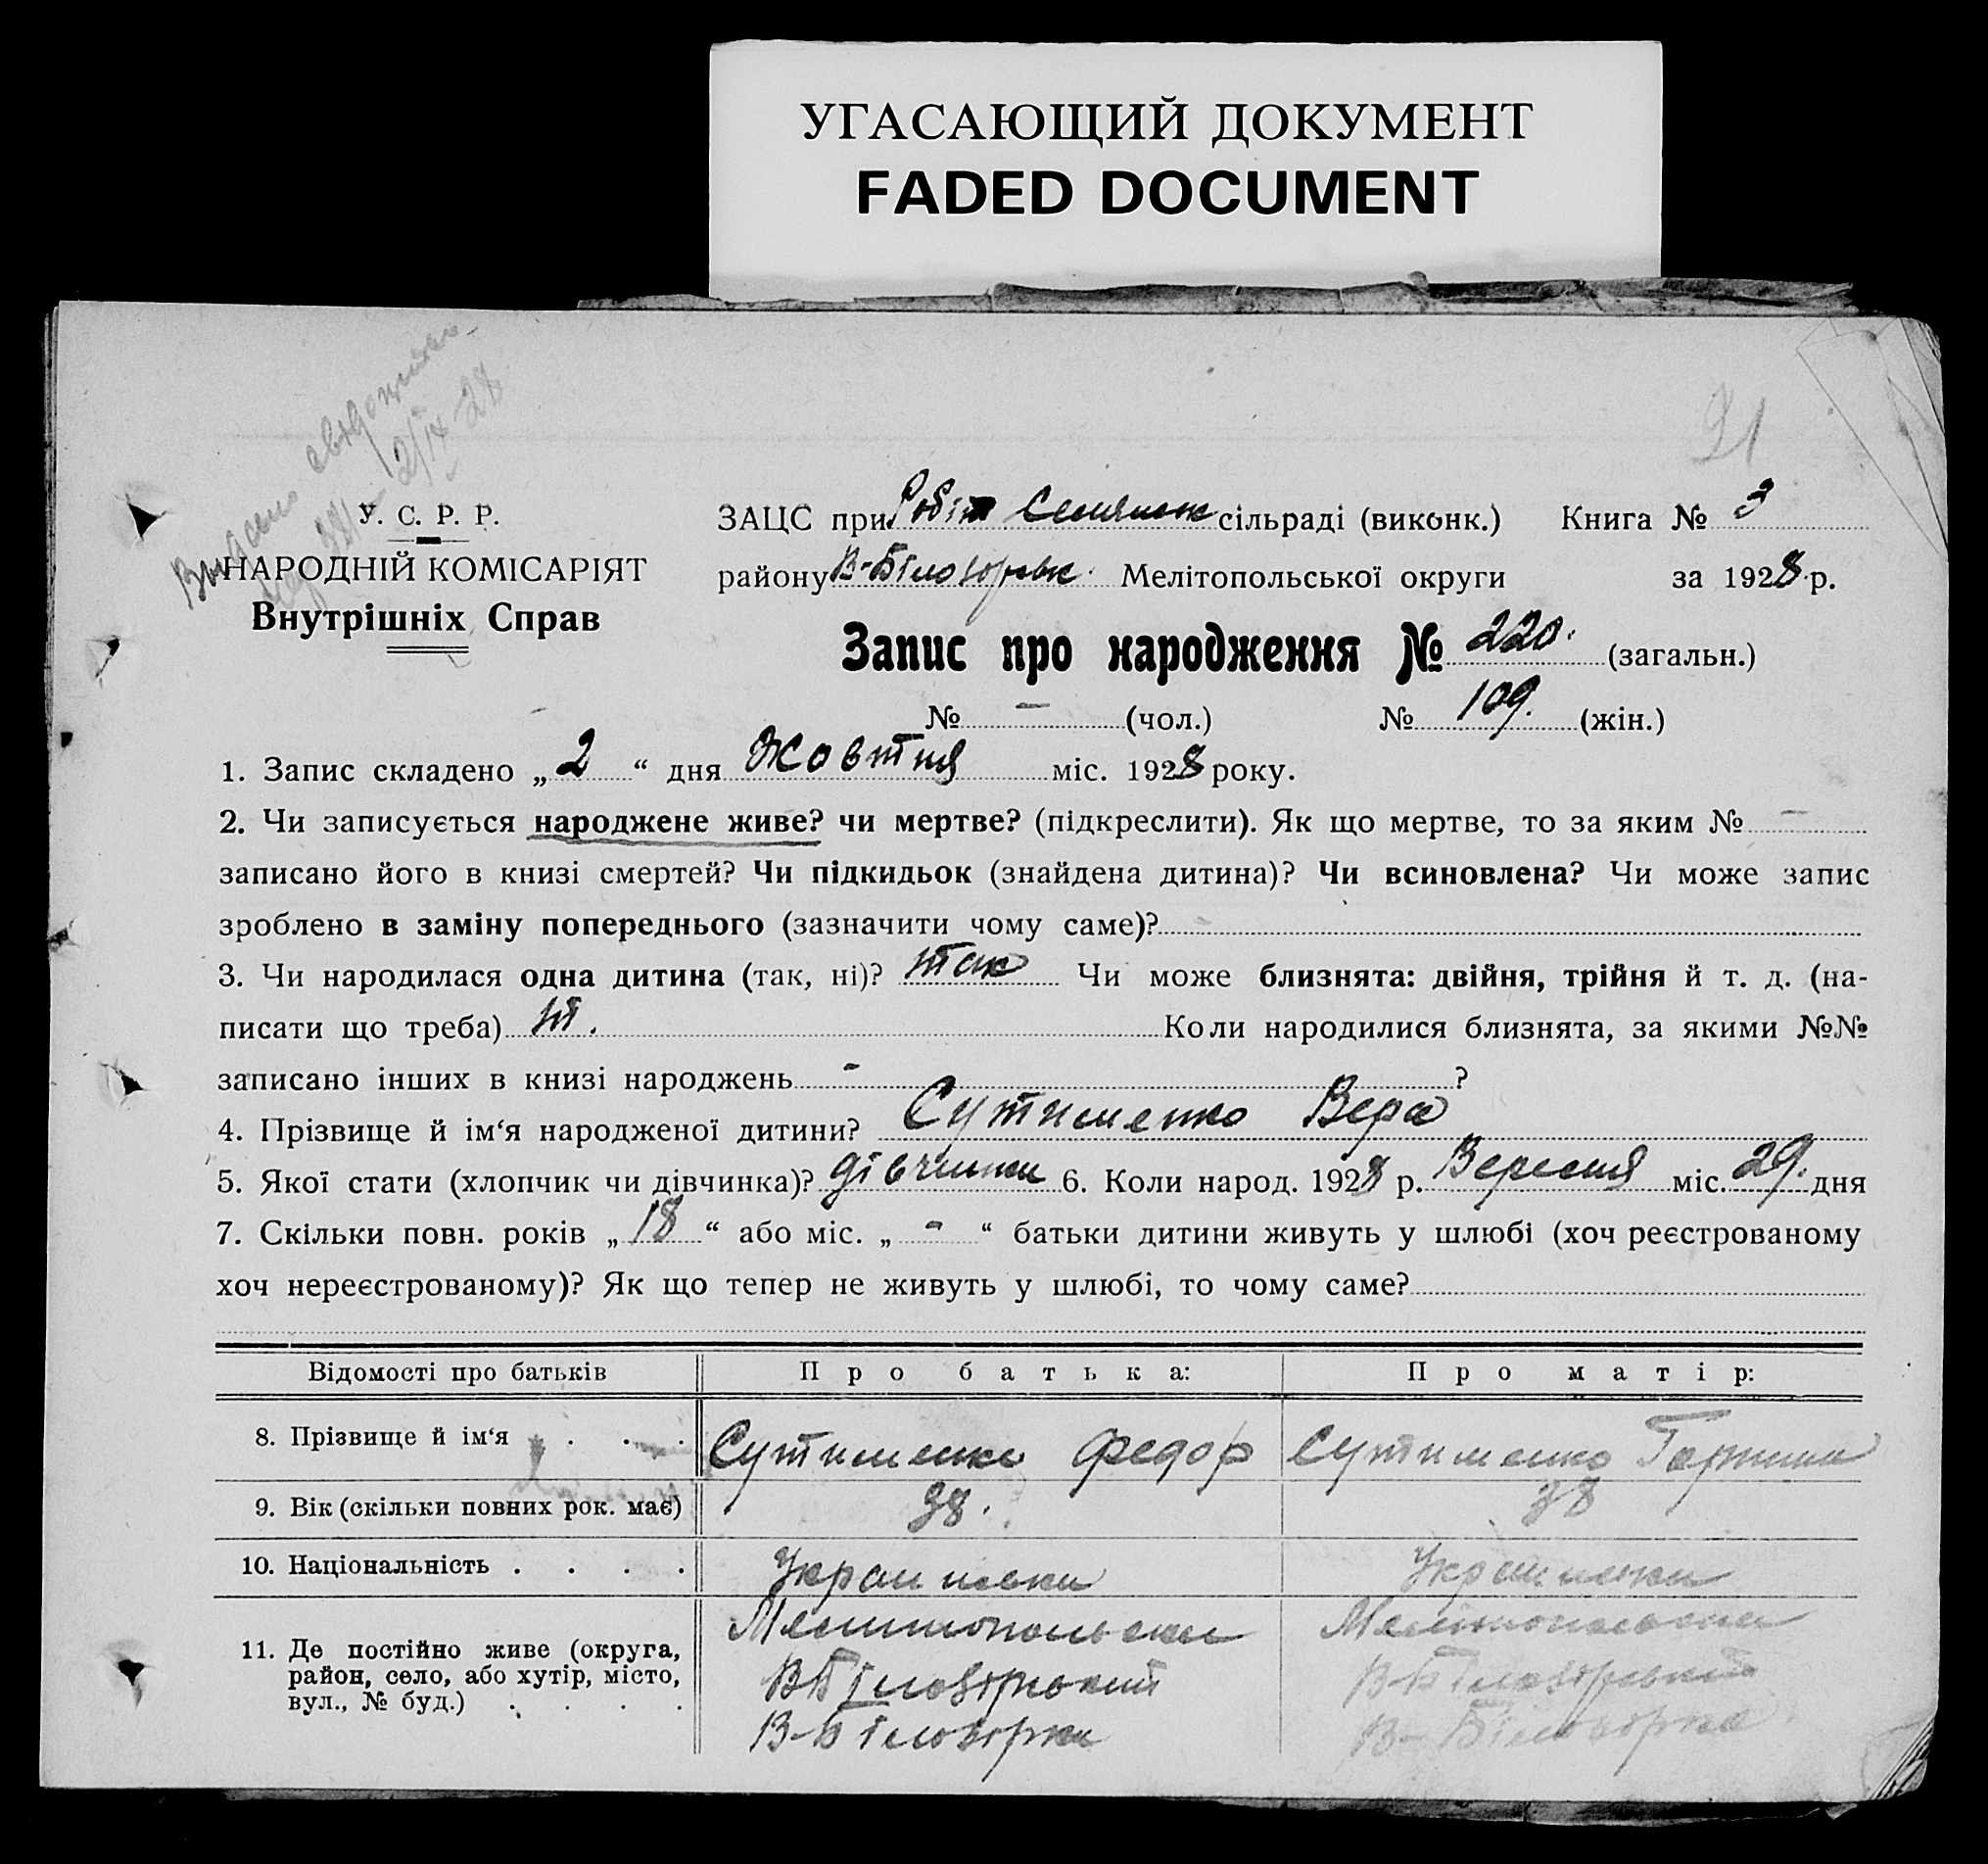 УГАСАЮЩИЙ ДОКУМЕНТ
FADED DOCUMENT
Видано свідоцтво
2/IX 28
91
У. С. Р. Р.
НАРОДНІЙ КОМІСАРІЯТ
Внутрішніх Справ
ЗАЦС при Робіт Селянськ сільраді (виконк.) Книга № 3
району В-Білозірськ. Мелітопольської округи за 1928 р.
Запис про народження № 220. (загальн.)
№ - (чол.) № 109. (жін.)
1. Запис складено „2“ дня Жовтня міс. 1928 року.
2. Чи записується народжене живе? чи мертве? (підкреслити). Як що мертве, то за яким № -
записано його в книзі смертей? Чи підкидьок (знайдена дитина)? Чи всиновлена? Чи може запис
зроблено в заміну попереднього (зазначити чому саме)?
3. Чи народилася одна дитина (так, ні)? так Чи може близнята: двійня, трійня й т. д. (на-
писати що треба) ні. Коли народилися близнята, за якими №№
записано інших в книзі народжень - ?
4. Прізвище й ім‘я народженої дитини? Сутименко Вера
5. Якої стати (хлопчик чи дівчинка)? дівчинка 6. Коли народ. 1928 р. Вересня міс. 29. дня
7. Скільки повн. років „18“ або міс. „-“ батьки дитини живуть у шлюбі (хоч реєстрованому
хоч нереєстрованому)? Як що тепер не живуть у шлюбі, то чому саме?
Відомості про батьків Про батька: Про матір:
8. Прізвище й ім‘я . . . Сутименко Федор Сутименко
9. Вік (скільки повних рок. має) 38. 38
10. Національність . . . . Украинська Украинська
11. Де постійно живе (округа, район, село, або хутір, місто, вул., № буд.) . . . .
Мелитопольська Мелитопольська
В-Білозірський В-Білозірський
В-Білозірка В-Білозірка